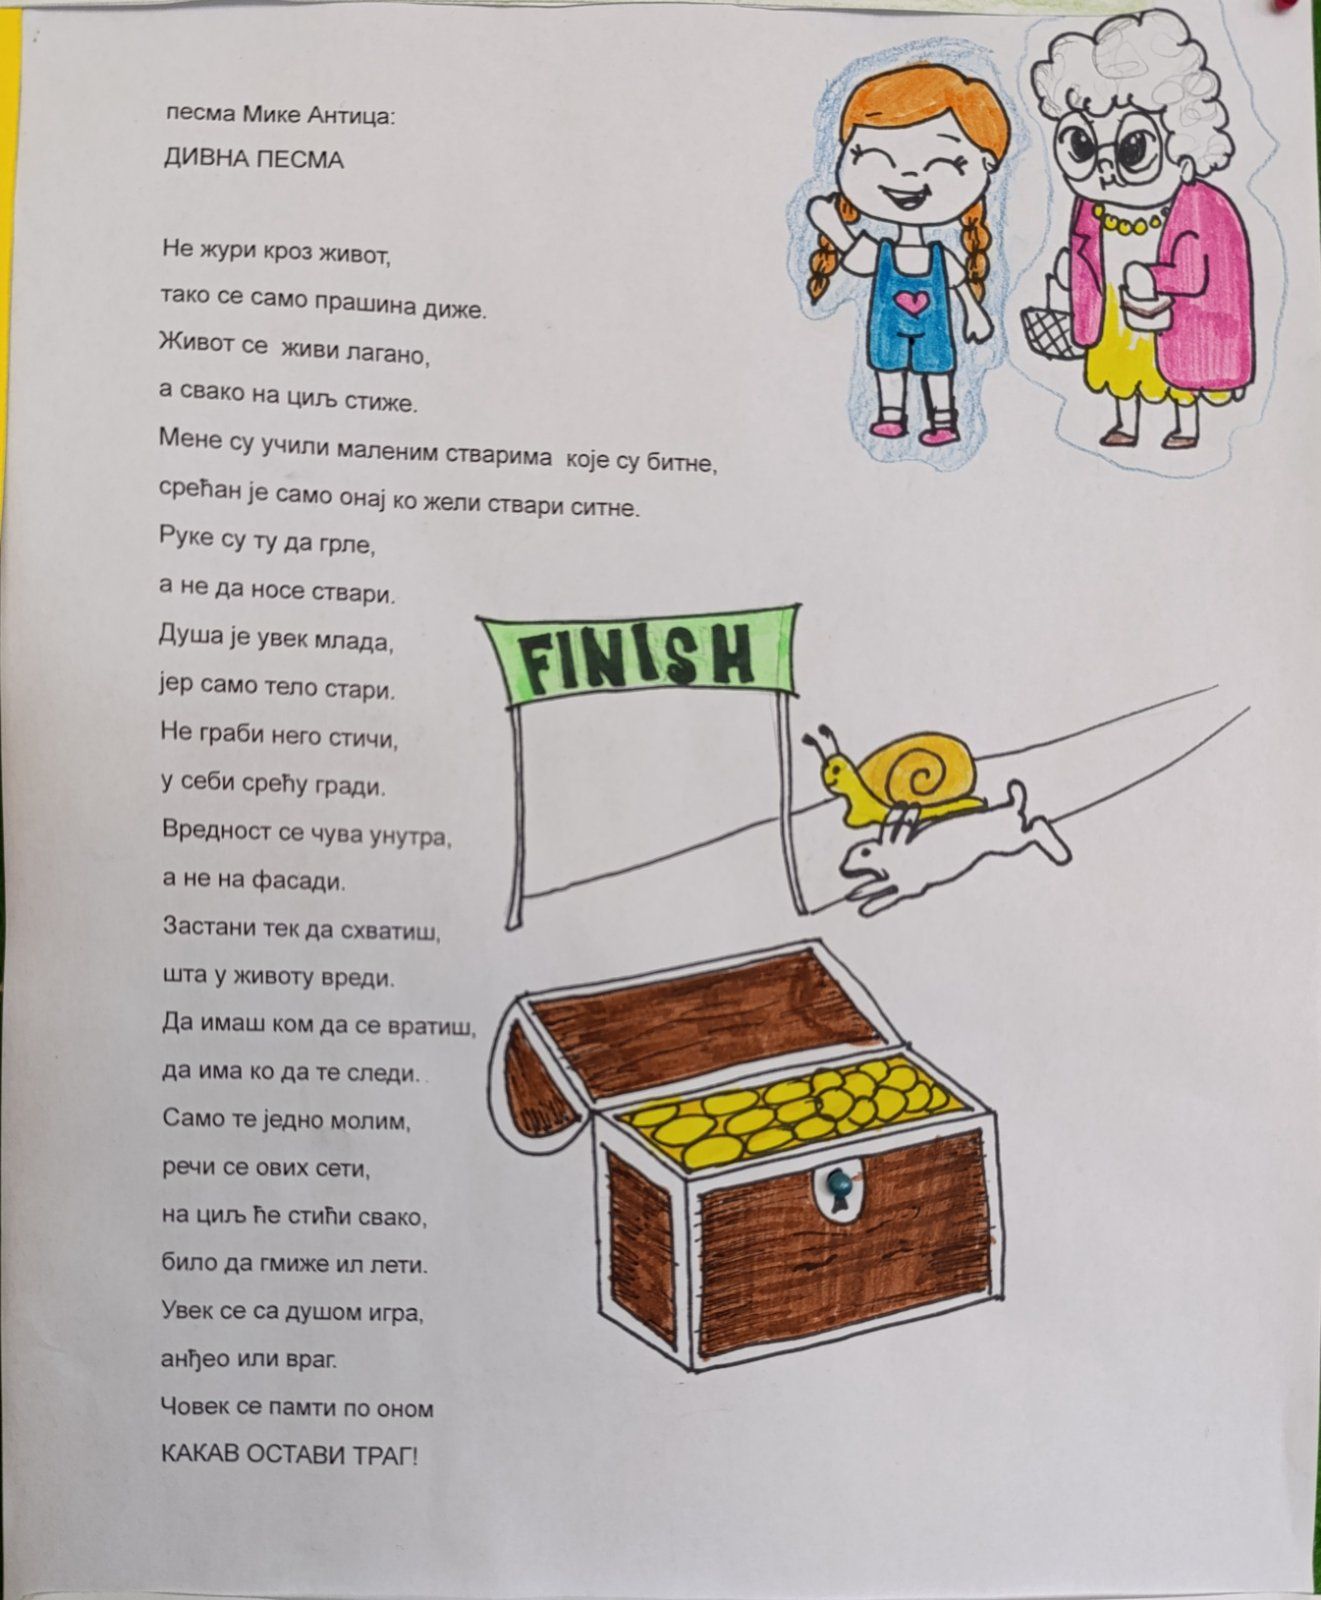 песма Мике Антица:
ДИВНА ПЕСМА
Не жури кроз живот,
тако се само прашина диже.
Живот се живи лагано,
а свако на циљ стиже.
Мене су учили маленим стварима које су битне,
срећан је само онај ко жели ствари ситне.
Руке су ту да грле,
а не да носе ствари.
Душа је увек млада,
јер само тело стари.
Не граби него стичи,
у себи срећу гради.
Вредност се чува унутра,
а не на фасади.
Застани тек да схватиш,
шта у животу вреди.
Да имаш ком да се вратиш,
да има ко да те следи.
Само те једно молим,
речи се ових сети,
на циљ ће стићи свако,
било да гмиже ил лети.
Увек се са душом игра,
анђео или враг.
Човек се памти по оном
КАКАВ ОСТАВИ ТРАГ!
FINISH